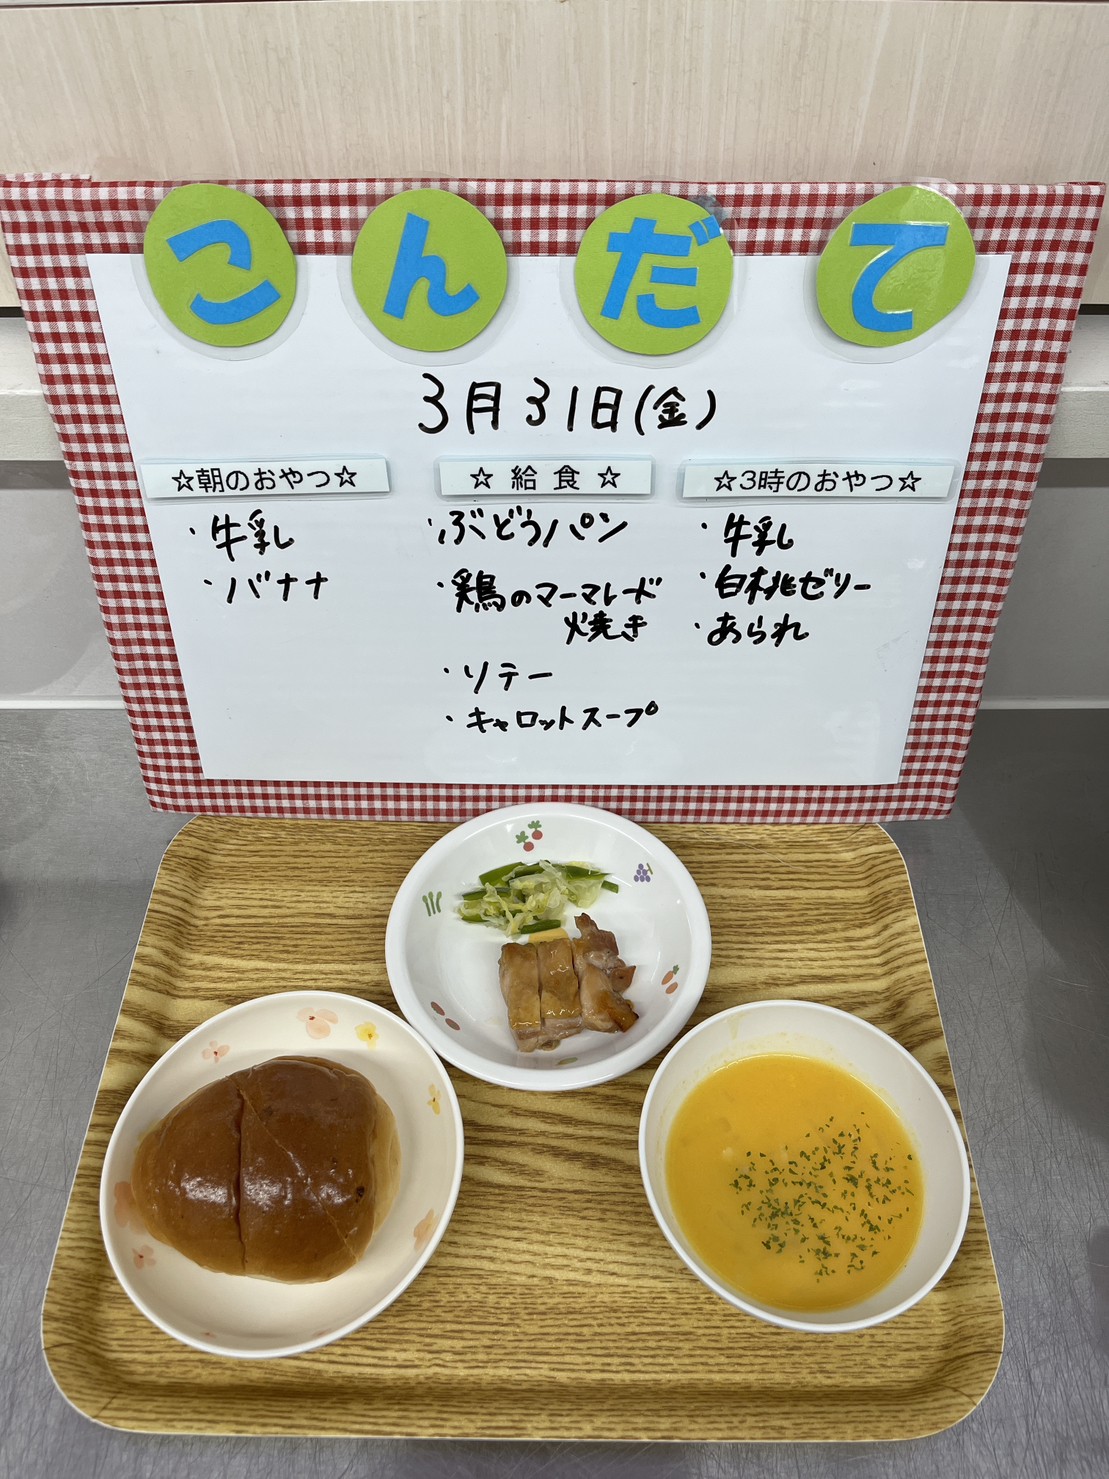 こんだて
3月31日(金)
☆朝のおやつ☆
・牛乳
・バナナ
☆ 給 食 ☆
・ぶどうパン
・鶏のマーマレード
焼き
・ソテー
・キャロットスープ
☆3時のおやつ☆
・牛乳
・白桃ゼリー
・あられ